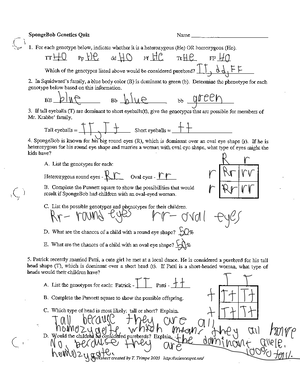 SpongeBob Genetics Quiz Name
1. For each genotype below, indicate whether it is a heterozygous (He) OR homozygous (Ho).
TT Ho Pp He dd Ho Ff He Tt He FF Ho
Which of the genotypes listed above would be considered purebred? TT, dd, FF
2. In Squidward's family, a blue body color (B) is dominant to green (b). Determine the phenotype for each
genotype below based on this information.
BB blue Bb blue bb green
3. If tall eyeballs (T) are dominant to short eyeballs(t), give the genotypes that are possible for members of
Mr. Krabbs' family.
Tall eyeballs = TT, Tt Short eyeballs = tt
4. SpongeBob is known for his big round eyes (R), which is dominant over an oval eye shape (r). If he is
heterozygous for his round eye shape and marries a woman with oval eye shape, what type of eyes might the
kids have?
A. List the genotypes for each:
Heterozygous round eyes - Rr Oval eye - rr
B. Complete the Punnett square to show the possibilities that would
result if SpongeBob had children with an oval-eyed woman.
R r
r Rr rr
r Rr rr
C. List the possible genotypes and phenotypes for their children.
Rr- round eyes rr- oval eyes
D. What are the chances of a child with a round eye shape? 50%
E. What are the chances of a child with an oval eye shape? 50%
5. Patrick recently married Patti, a cute girl he met at a local dance. He is considered a purebred for his tall
head shape (T), which is dominant over a short head (t). If Patti is a short-headed woman, what type of
heads would their children have?
A. List the genotypes for each: TT tt
B. Complete the Punnett square to show the possible offspring.
T T
t Tt Tt
t Tt Tt
C. Which type of head is most likely, tall or short? Explain.
Tall because they are all